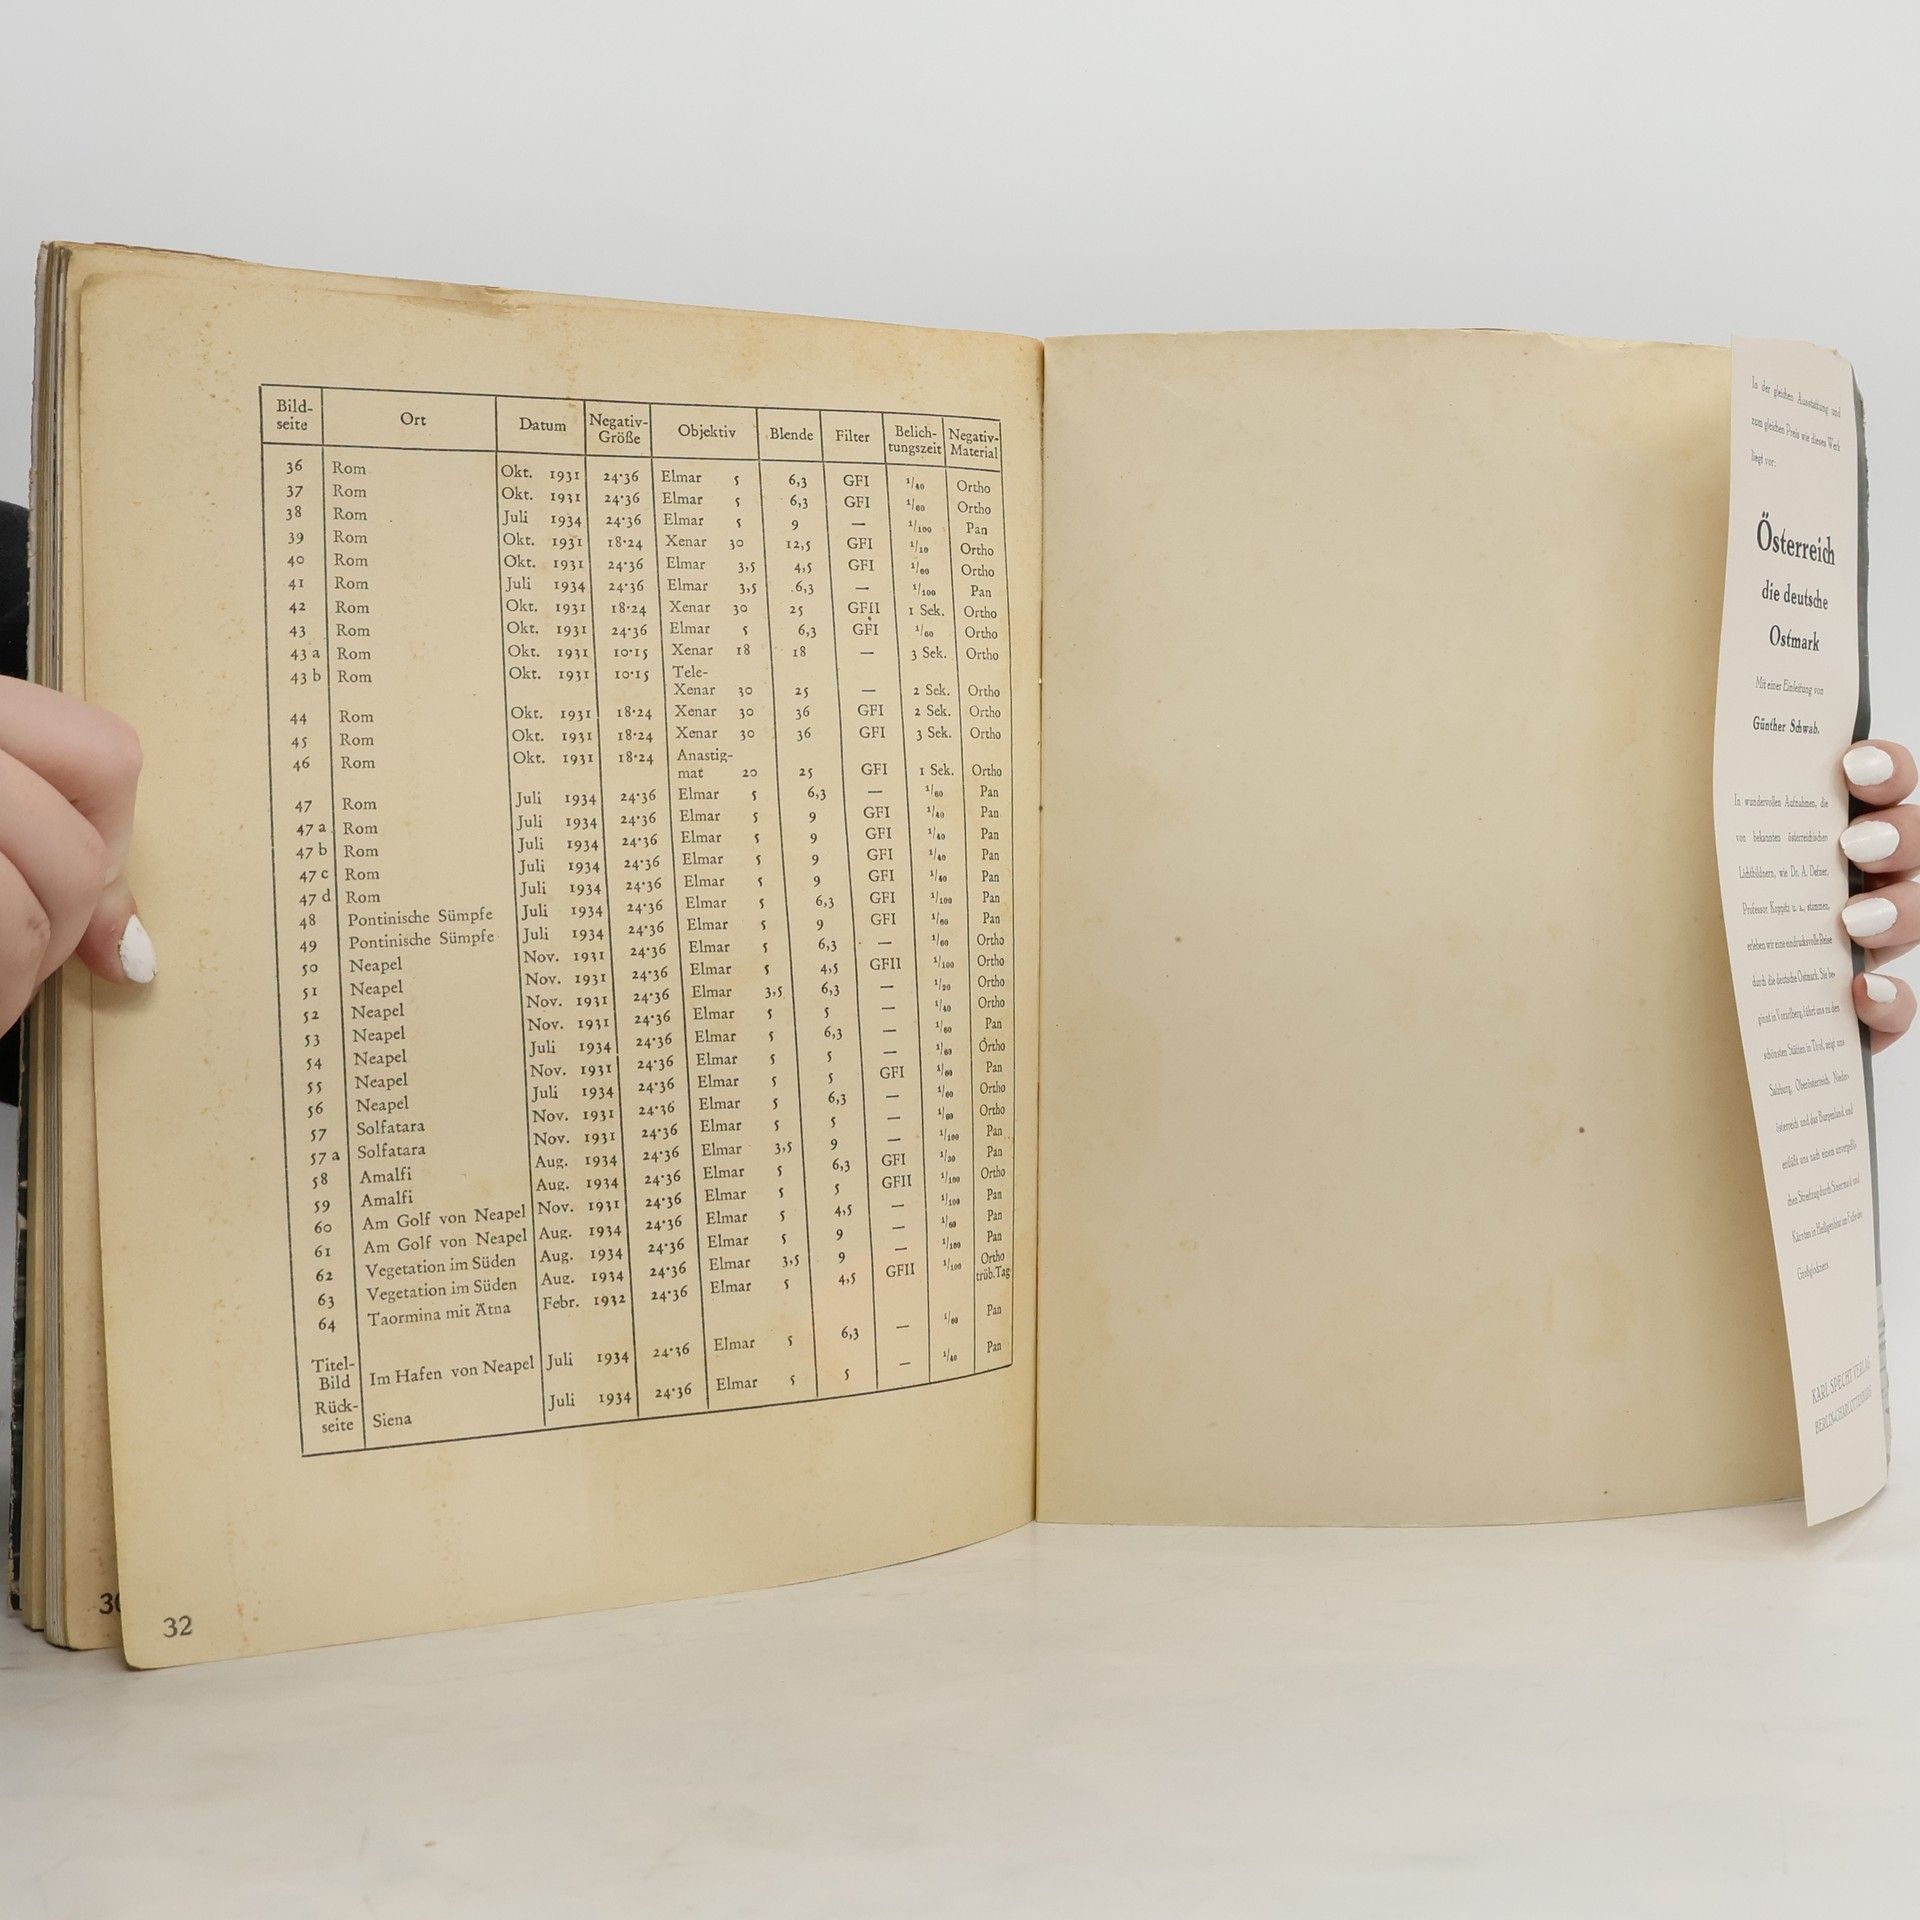 Bild- seite Ort Datum Negativ- Größe Objektiv Blende Filter Belich- tungszeit Negativ- Material
36 Rom Okt. 1931 24·36 Elmar 5 6,3 GFI 1/40 Ortho
37 Rom Okt. 1931 24·36 Elmar 5 6,3 GFI 1/60 Ortho
38 Rom Juli 1934 24·36 Elmar 5 9 — 1/100 Pan
39 Rom Okt. 1931 18·24 Xenar 30 12,5 GFI 1/10 Ortho
40 Rom Okt. 1931 24·36 Elmar 3,5 4,5 GFI 1/60 Ortho
41 Rom Juli 1934 24·36 Elmar 3,5 6,3 — 1/100 Pan
42 Rom Okt. 1931 18·24 Xenar 30 25 GFII 1 Sek. Ortho
43 Rom Okt. 1931 24·36 Elmar 5 6,3 GFI 1/60 Ortho
43 a Rom Okt. 1931 10·15 Xenar 18 18 — 3 Sek. Ortho
43 b Rom Okt. 1931 10·15 Tele-
Xenar 30 25 — 2 Sek. Ortho
44 Rom Okt. 1931 18·24 Xenar 30 36 GFI 2 Sek. Ortho
45 Rom Okt. 1931 18·24 Xenar 30 36 GFI 3 Sek. Ortho
46 Rom Okt. 1931 18·24 Anastig-
mat 20 25 GFI 1 Sek. Ortho
47 Rom Juli 1934 24·36 Elmar 5 6,3 — 1/60 Pan
47 a Rom Juli 1934 24·36 Elmar 5 9 GFI 1/40 Pan
47 b Rom Juli 1934 24·36 Elmar 5 9 GFI 1/40 Pan
47 c Rom Juli 1934 24·36 Elmar 5 9 GFI 1/40 Pan
47 d Rom Juli 1934 24·36 Elmar 5 9 GFI 1/40 Pan
48 Pontinische Sümpfe Juli 1934 24·36 Elmar 5 6,3 GFI 1/100 Pan
49 Pontinische Sümpfe Juli 1934 24·36 Elmar 5 9 GFI 1/60 Pan
50 Neapel Nov. 1931 24·36 Elmar 5 6,3 — 1/60 Ortho
51 Neapel Nov. 1931 24·36 Elmar 5 4,5 GFII 1/100 Ortho
52 Neapel Nov. 1931 24·36 Elmar 3,5 6,3 — 1/20 Ortho
53 Neapel Nov. 1931 24·36 Elmar 5 5 — 1/40 Ortho
54 Neapel Juli 1934 24·36 Elmar 5 6,3 — 1/60 Pan
55 Neapel Nov. 1931 24·36 Elmar 5 5 — 1/60 Ortho
56 Neapel Juli 1934 24·36 Elmar 5 5 GFI 1/60 Pan
57 Solfatara Nov. 1931 24·36 Elmar 5 6,3 — 1/60 Ortho
57 a Solfatara Nov. 1931 24·36 Elmar 5 5 — 1/60 Ortho
58 Amalfi Aug. 1934 24·36 Elmar 3,5 9 — 1/100 Pan
59 Amalfi Aug. 1934 24·36 Elmar 5 6,3 GFI Pan
60 Am Golf von Neapel Nov. 1931 24·36 Elmar 5 5 GFII 1/100 Ortho
61 Am Golf von Neapel Aug. 1934 24·36 Elmar 5 4,5 — 1/100 Pan
62 Vegetation im Süden Aug. 1934 24·36 Elmar 5 9 — 1/60 Pan
63 Vegetation im Süden Aug. 1934 24·36 Elmar 3,5 9 — 1/100 Pan
64 Taormina mit Ätna Febr. 1932 24·36 Elmar 5 4,5 GFII 1/100 Ortho
trüb.Tag
Titel-
Bild Im Hafen von Neapel Juli 1934 24·36 Elmar 5 6,3 — 1/60 Pan
Rück-
seite Siena Juli 1934 24·36 Elmar 5 5 — 1/40 Pan
32
In der gleichen Ausstattung und
zum gleichen Preis wie dieses Werk
liegt vor:
Österreich
die deutsche
Ostmark
Mit einer Einleitung von
Günther Schwab.
In wundervollen Aufnahmen, die
von bekannten österreichischen
Lichtbildnern, wie Dr. A. Defner,
Professor Koppitz u. a., stammen,
erleben wir eine eindrucksvolle Reise
durch die deutsche Ostmark. Sie be-
ginnt in Vorarlberg, führt uns zu den
schönsten Stätten in Tirol, zeigt uns
Salzburg, Oberösterreich, Nieder-
österreich und das Burgenland und
entläßt uns nach einem unvergeß-
chen Streifzug durch Steiermark und
Kärnten in Heiligenblut am Fuße des
Großglockners.
KARL SPECHT VERLAG
BERLIN-CHARLOTTENBURG